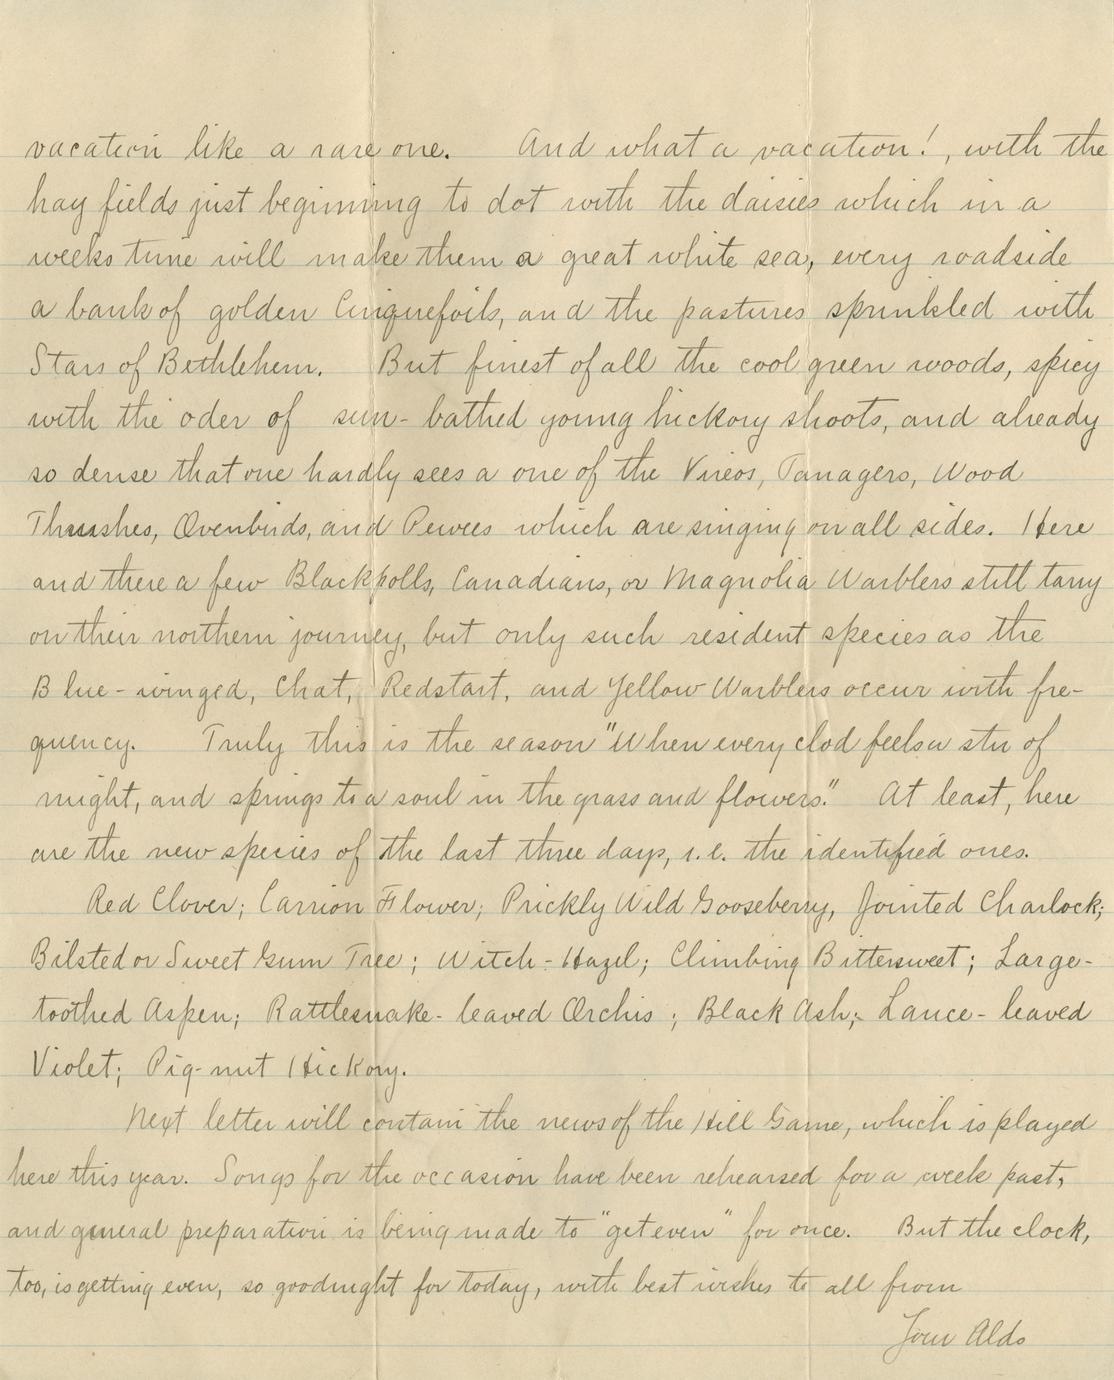 vacation like a rare one. And what a vacation!, with the
hay fields just beginning to dot with the daisies which in a
weeks time will make them a great white sea, every roadside
a bank of golden Cinquefoils, and the pastures sprinkled with
Stars of Bethlehem. But finest of all the cool green woods, spicy
with the oder of sun-bathed young hickory shoots, and already
so dense that one hardly sees a one of the Vireos, Tanagers, Wood
Thrushes, Ovenbirds, and Pewees which are singing on all sides. Here
and there a few Blackpolls, Canadians, or Magnolia Warblers still tarry
on their northern journey, but only such resident species as the
Blue-winged, Chat, Redstart, and Yellow Warblers occur with fre-
quency. Truly this is the season "When every clod feels a stir of
might, and springs to a soul in the grass and flowers." At least, here
are the new species of the last three days, i.e. the identified ones.
Red Clover; Carrion Flower; Prickly Wild Gooseberry, Jointed Charlock;
Bilsted or Sweet Gum Tree; Witch-Hazel; Climbing Bittersweet; Large-
toothed Aspen; Rattlesnake-leaved Orchis; Black Ash; Lance-leaved
Violet; Pig-nut Hickory.
Next letter will contain the news of the Hill Game, which is played
here this year. Songs for the occasion have been rehearsed for a week past,
and general preparation is being made to "get even" for once. But the clock,
too, is getting even, so goodnight for today, with best wishes to all from
Your Aldo